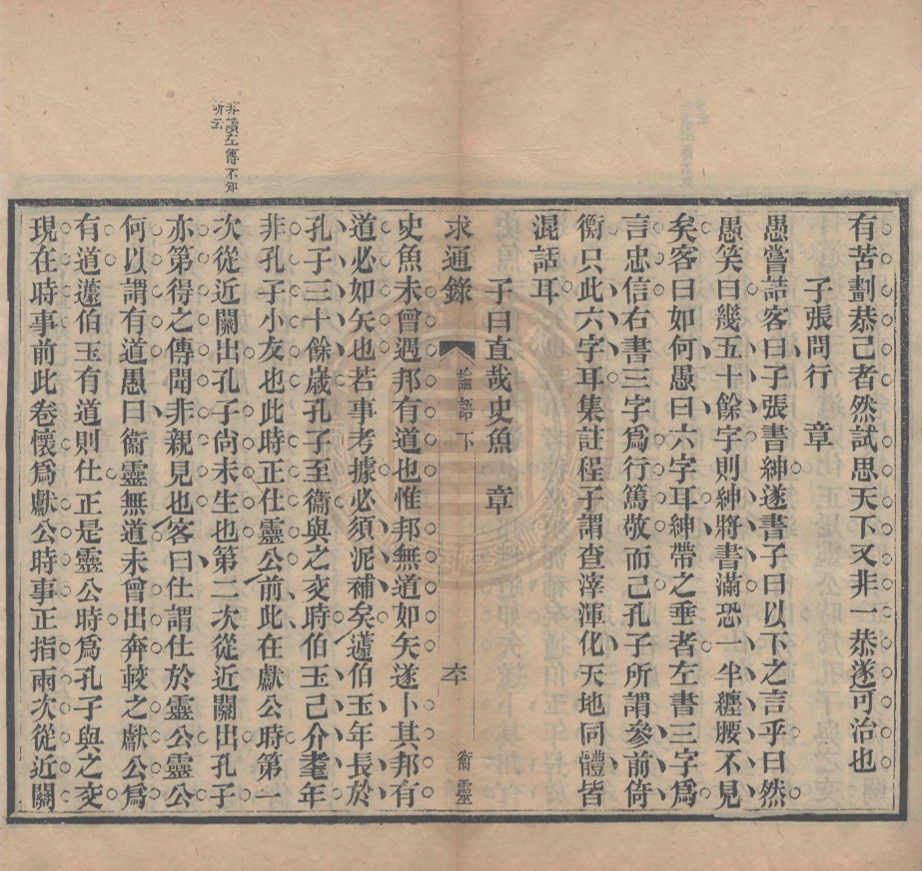 有苦劃恭己者然試思天下又非一恭遂可治也
子張問行　章
愚嘗詰客曰子張書紳遂書子曰以下之言乎曰然
愚笑曰幾五十餘字則紳將書滿恐一半纏腰不見
矣客曰如何愚曰六字耳紳帶之垂者左書三字爲
言忠信右書三字爲行篤敬而已孔子所謂參前倚
衡只此六字耳集註程子謂查滓渾化天地同體皆
混話耳
子曰直哉史魚　章
求通錄
論語下
衞靈
史魚未曾遇邦有道也惟邦無道如矢遂卜其邦有
道必如矢也若事考據必須泥補矣蘧伯玉年長於
孔子三十餘歲孔子至衞與之交時伯玉已介耋年
非孔子小友也此時正仕靈公前此在獻公時第一
次從近關出孔子尙未生也第二次從近關出孔子
亦第得之傳聞非親見也客曰仕謂仕於靈公靈公
何以謂有道愚曰衞靈無道未曾出奔較之獻公爲
有道蘧伯玉有道則仕正是靈公時爲孔子與之交
現在時事前此卷懷爲獻公時事正指兩次從近關
非讀左傳不知
所云